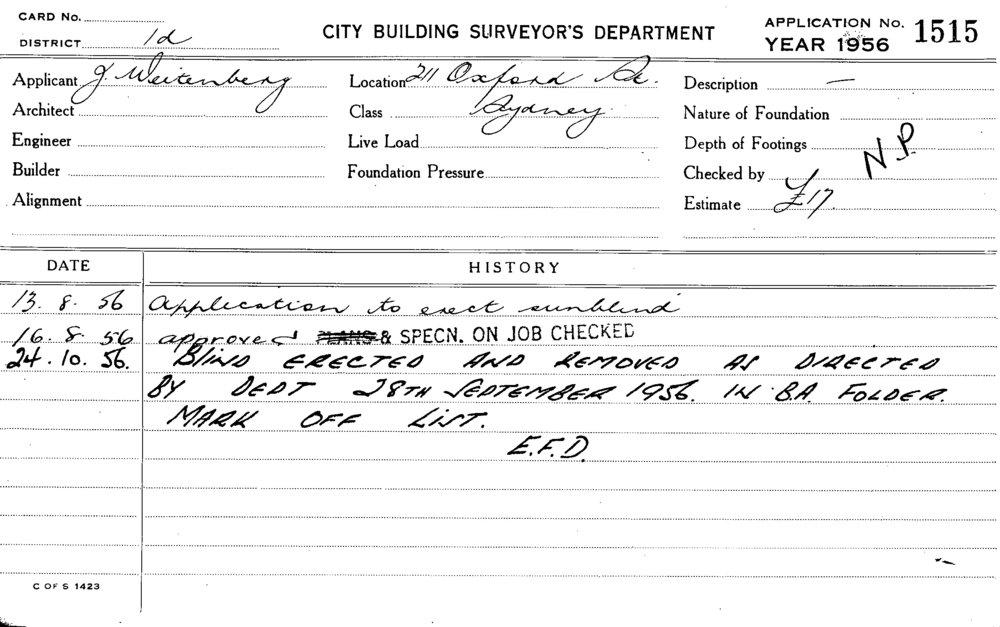 CARD No.
DISTRICT 1d
CITY BUILDING SURVEYOR'S DEPARTMENT
APPLICATION No. 1515
YEAR 1956
Applicant J. Weitenberg
Location 211 Oxford St.
Description —
Architect
Class Sydney.
Nature of Foundation
Engineer
Live Load
Depth of Footings
N.P
Builder
Foundation Pressure
Checked by
Alignment
Estimate £17.
DATE
HISTORY
13. 8. 56 Application to erect sunblind
16. 8. 56 approved PLANS & SPECN. ON JOB CHECKED
24. 10. 56. BLIND ERECTED AND REMOVED AS DIRECTED
BY DEPT 28TH SEPTEMBER 1956. IN B.A. FOLDER.
MARK OFF LIST.
E.F.D.
C OF S 1423